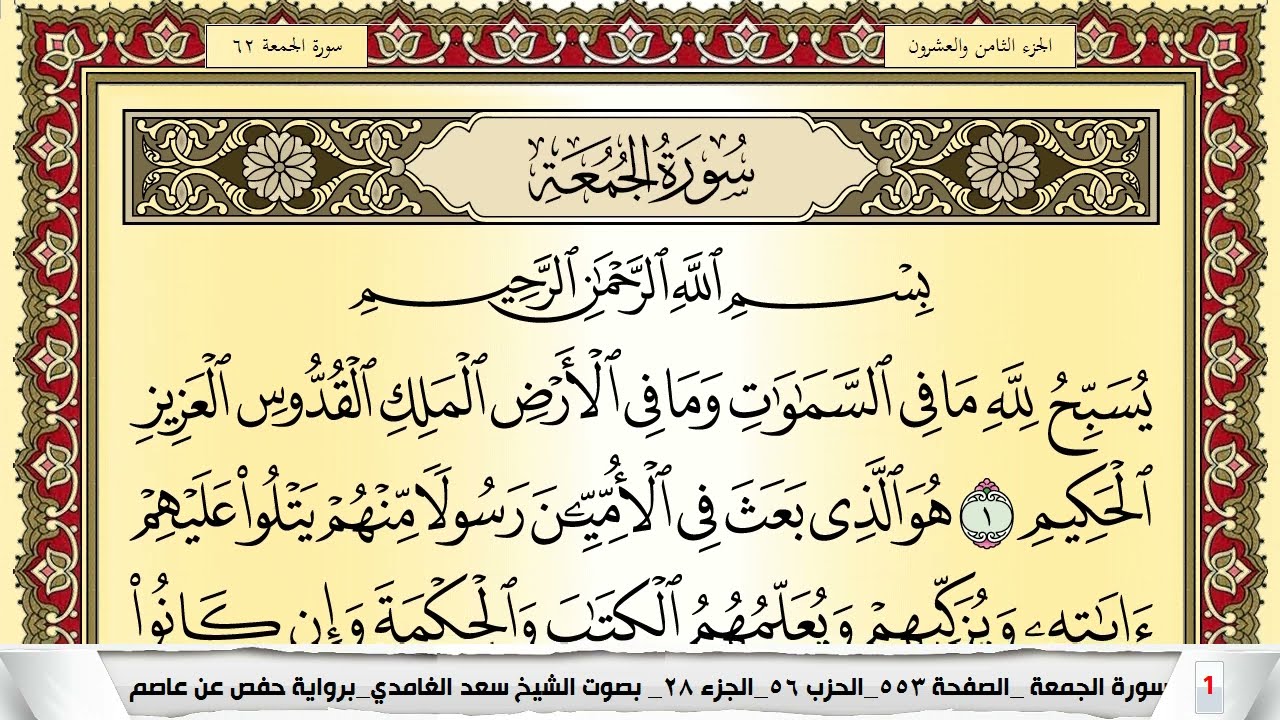 الجزء الثامن والعشرون
سورة الجمعة ٦٢
سُورَةُ الجُمُعَةِ
بِسْمِ ٱللَّهِ ٱلرَّحْمَٰنِ ٱلرَّحِيمِ
يُسَبِّحُ لِلَّهِ مَا فِى ٱلسَّمَٰوَٰتِ وَمَا فِى ٱلْأَرْضِ ٱلْمَلِكِ ٱلْقُدُّوسِ ٱلْعَزِيزِ
ٱلْحَكِيمِ ١ هُوَ ٱلَّذِى بَعَثَ فِى ٱلْأُمِّيِّۦنَ رَسُولًا مِّنْهُمْ يَتْلُوا۟ عَلَيْهِمْ
ءَايَٰتِهِۦ وَيُزَكِّيهِمْ وَيُعَلِّمُهُمُ ٱلْكِتَٰبَ وَٱلْحِكْمَةَ وَإِن كَانُوا۟
1 سورة الجمعة _الصفحة ٥٥٣_الحزب ٥٦_الجزء ٢٨_ بصوت الشيخ سعد الغامدي_برواية حفص عن عاصم